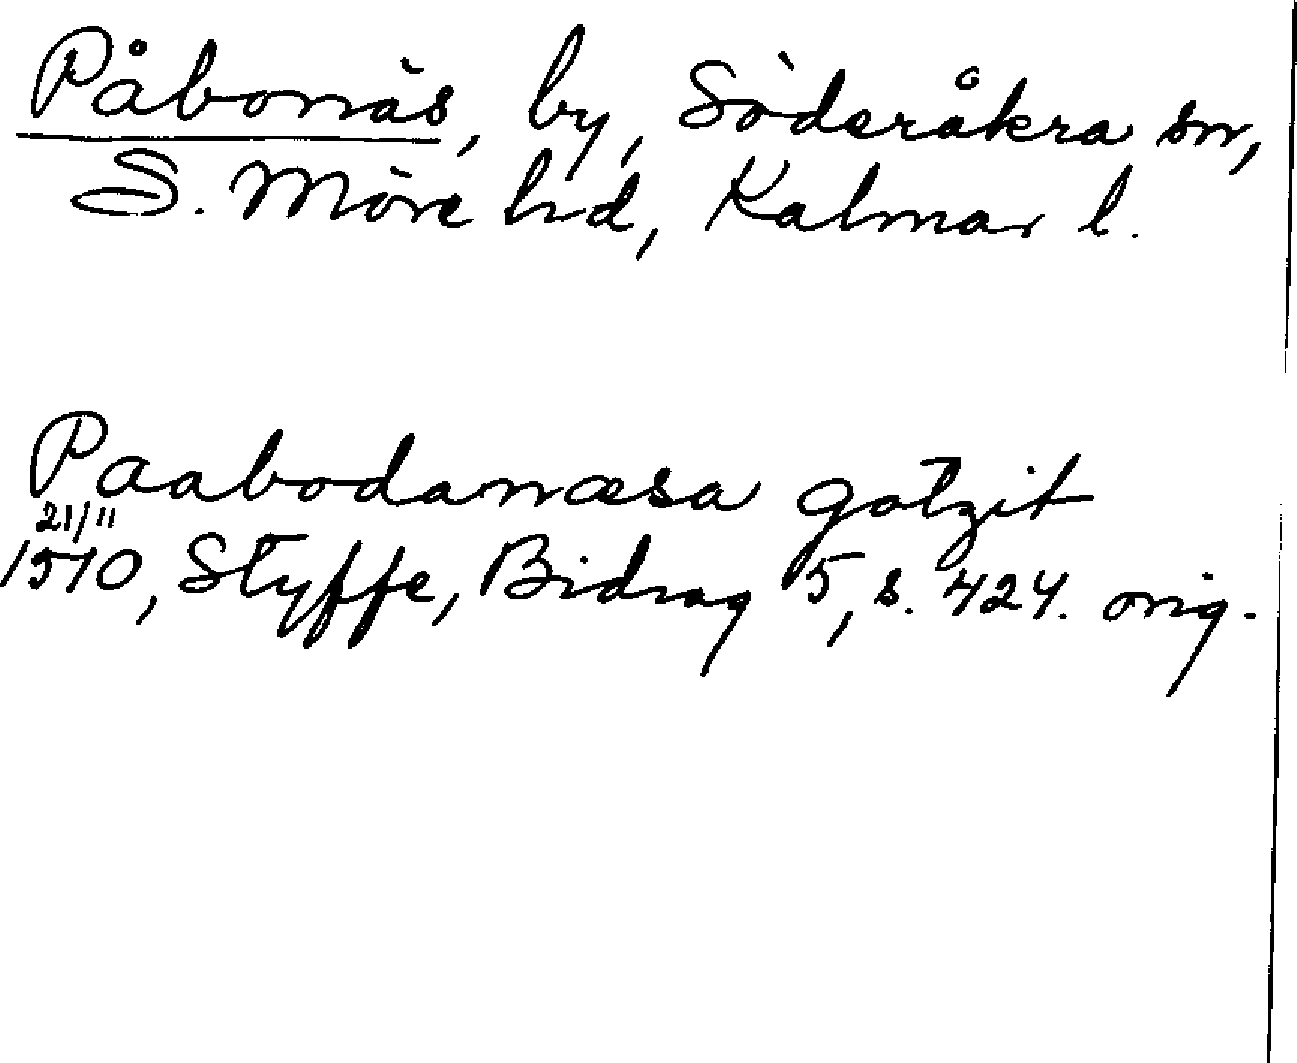 Påbonäs, by, Söderåkra sn,
S. Möre hd, Kalmar l.
Paabodanæsa gotzit
21/11
1510, Styffe, Bidrag 5, s. 424. orig.